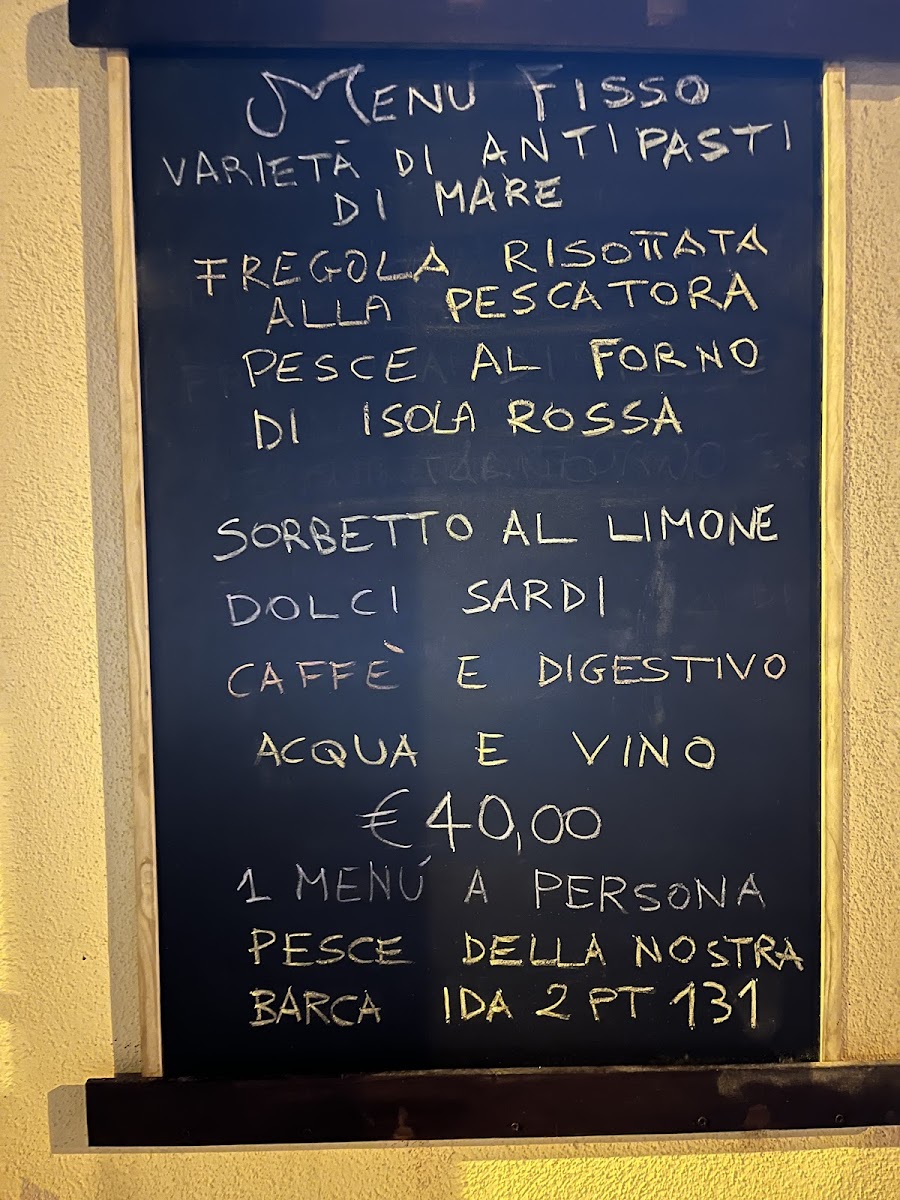 MENU FISSO
VARIETÀ DI ANTIPASTI
DI MARE
FREGOLA RISOTTATA
ALLA PESCATORA
PESCE AL FORNO
DI ISOLA ROSSA
SORBETTO AL LIMONE
DOLCI SARDI
CAFFÈ E DIGESTIVO
ACQUA E VINO
€ 40,00
1 MENÚ A PERSONA
PESCE DELLA NOSTRA
BARCA IDA 2 PT 131